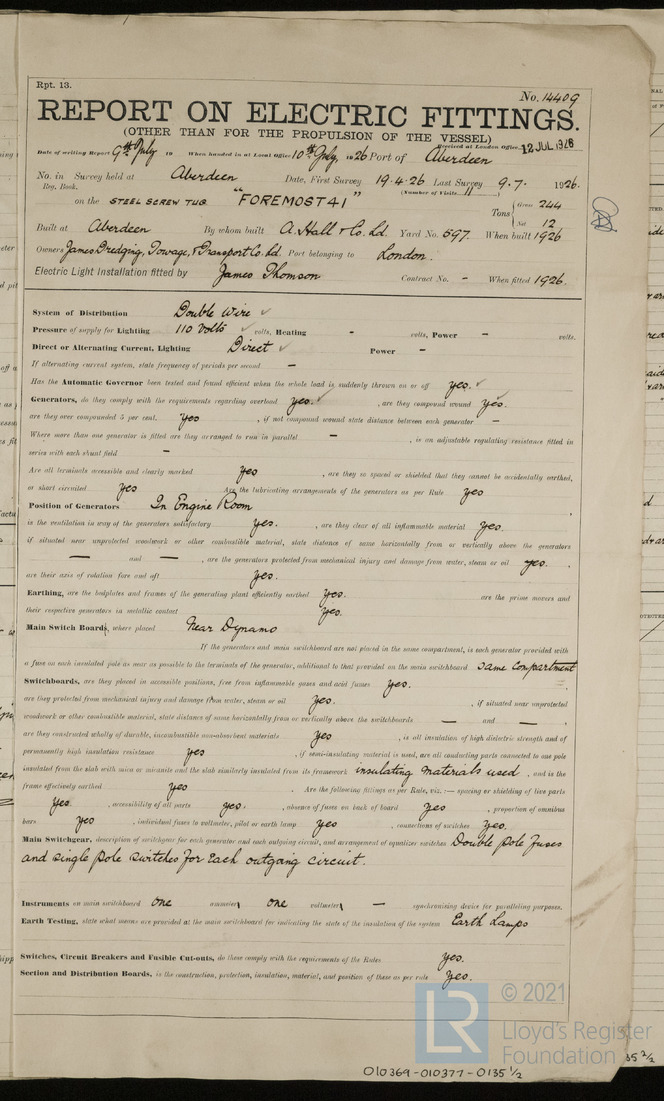 Rpt. 13.
No. 14409
REPORT ON ELECTRIC FITTINGS.
(OTHER THAN FOR THE PROPULSION OF THE VESSEL)
Date of writing Report 9th July 19 When handed in at Local Office 10th July, 1926 Port of Aberdeen Received at London Office 12 JUL 1926
No. in Survey held at Aberdeen Date, First Survey 19.4.26 Last Survey 9.7. 1926.
Reg. Book. (Number of Visits 11)
on the STEEL SCREW TUG "FOREMOST 41" Tons { Gross 244
Net 12
Built at Aberdeen By whom built A. Hall & Co. Ld. Yard No. 597. When built 1926
Owners James Dredging, Towage, & Transport Co. Ld. Port belonging to London.
Electric Light Installation fitted by James Thomson Contract No. - When fitted 1926.
System of Distribution Double Wire ✓
Pressure of supply for Lighting 110 Volts ✓ volts, Heating - volts, Power - volts.
Direct or Alternating Current, Lighting Direct ✓ Power -
If alternating current system, state frequency of periods per second -
Has the Automatic Governor been tested and found efficient when the whole load is suddenly thrown on or off yes. ✓
Generators, do they comply with the requirements regarding overload yes. ✓ , are they compound wound yes.
are they over compounded 5 per cent. yes , if not compound wound state distance between each generator -
Where more than one generator is fitted are they arranged to run in parallel - , is an adjustable regulating resistance fitted in
series with each shunt field -
Are all terminals accessible and clearly marked yes , are they so spaced or shielded that they cannot be accidentally earthed,
or short circuited yes Are the lubricating arrangements of the generators as per Rule yes
Position of Generators In Engine Room
is the ventilation in way of the generators satisfactory yes. , are they clear of all inflammable material yes.
if situated near unprotected woodwork or other combustible material, state distance of same horizontally from or vertically above the generators
— and — , are the generators protected from mechanical injury and damage from water, steam or oil yes.
are their axis of rotation fore and aft yes.
Earthing, are the bedplates and frames of the generating plant efficiently earthed yes. are the prime movers and
their respective generators in metallic contact yes.
Main Switch Boards, where placed Near Dynamo
If the generators and main switchboard are not placed in the same compartment, is each generator provided with
a fuse on each insulated pole as near as possible to the terminals of the generator, additional to that provided on the main switchboard same compartment
Switchboards, are they placed in accessible positions, free from inflammable gases and acid fumes yes.
are they protected from mechanical injury and damage from water, steam or oil yes. , if situated near unprotected
woodwork or other combustible material, state distance of same horizontally from or vertically above the switchboards — and — ,
are they constructed wholly of durable, incombustible non-absorbent materials yes , is all insulation of high dielectric strength and of
permanently high insulation resistance yes , if semi-insulating material is used, are all conducting parts connected to one pole
insulated from the slab with mica or micanite and the slab similarly insulated from its framework insulating materials used , and is the
frame effectively earthed yes . Are the following fittings as per Rule, viz.:— spacing or shielding of live parts
yes. , accessibility of all parts yes. , absence of fuses on back of board yes , proportion of omnibus
bars yes , individual fuses to voltmeter, pilot or earth lamp yes , connections of switches yes.
Main Switchgear, description of switchgear for each generator and each outgoing circuit, and arrangement of equalizer switches Double Pole Fuses
and single pole switches for each outgang circuit.
Instruments on main switchboard one ammeter one voltmeter — synchronising device for paralleling purposes.
Earth Testing, state what means are provided at the main switchboard for indicating the state of the insulation of the system Earth Lamps
Switches, Circuit Breakers and Fusible Cut-outs, do these comply with the requirements of the Rules yes.
Section and Distribution Boards, is the construction, protection, insulation, material, and position of these as per rule yes.
© 2021
LR
Lloyd's Register
Foundation
010369-010377-0135 1/2